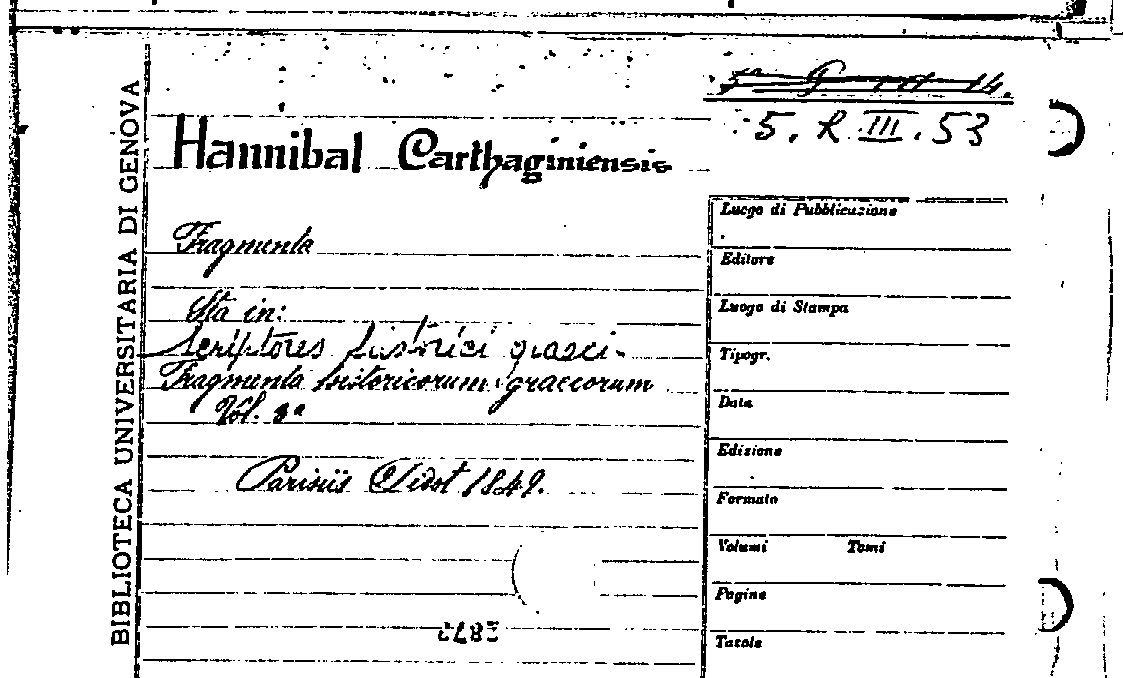 BIBLIOTECA UNIVERSITARIA DI GENOVA
5. R. III. 53
Hannibal Carthaginiensis
Fragmenta
Sta in:
Scriptores historici graeci.
Fragmenta historicorum graecorum
Vol. 3º
Parisiis Didot 1849.
Luogo di Pubblicazione
Editore
Luogo di Stampa
Tipogr.
Data
Edizione
Formato
Volumi Tomi
Pagine
Tavole